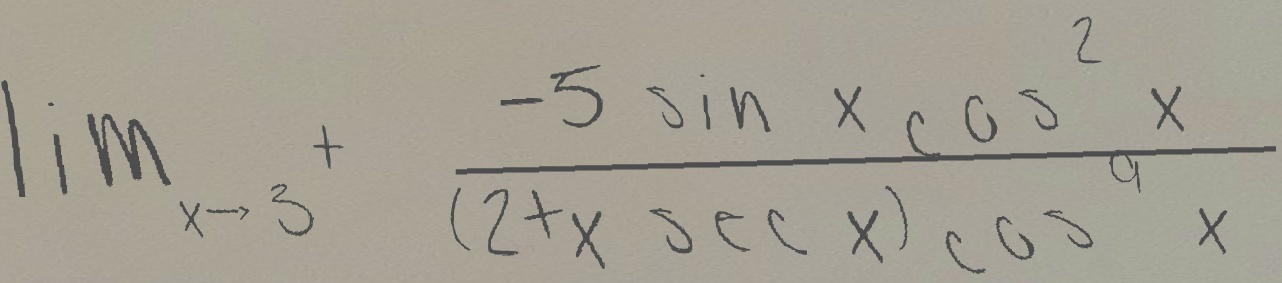 lim_{x→3^+} \frac{-5 sin x cos^2 x}{(2+x sec x) cos^9 x}